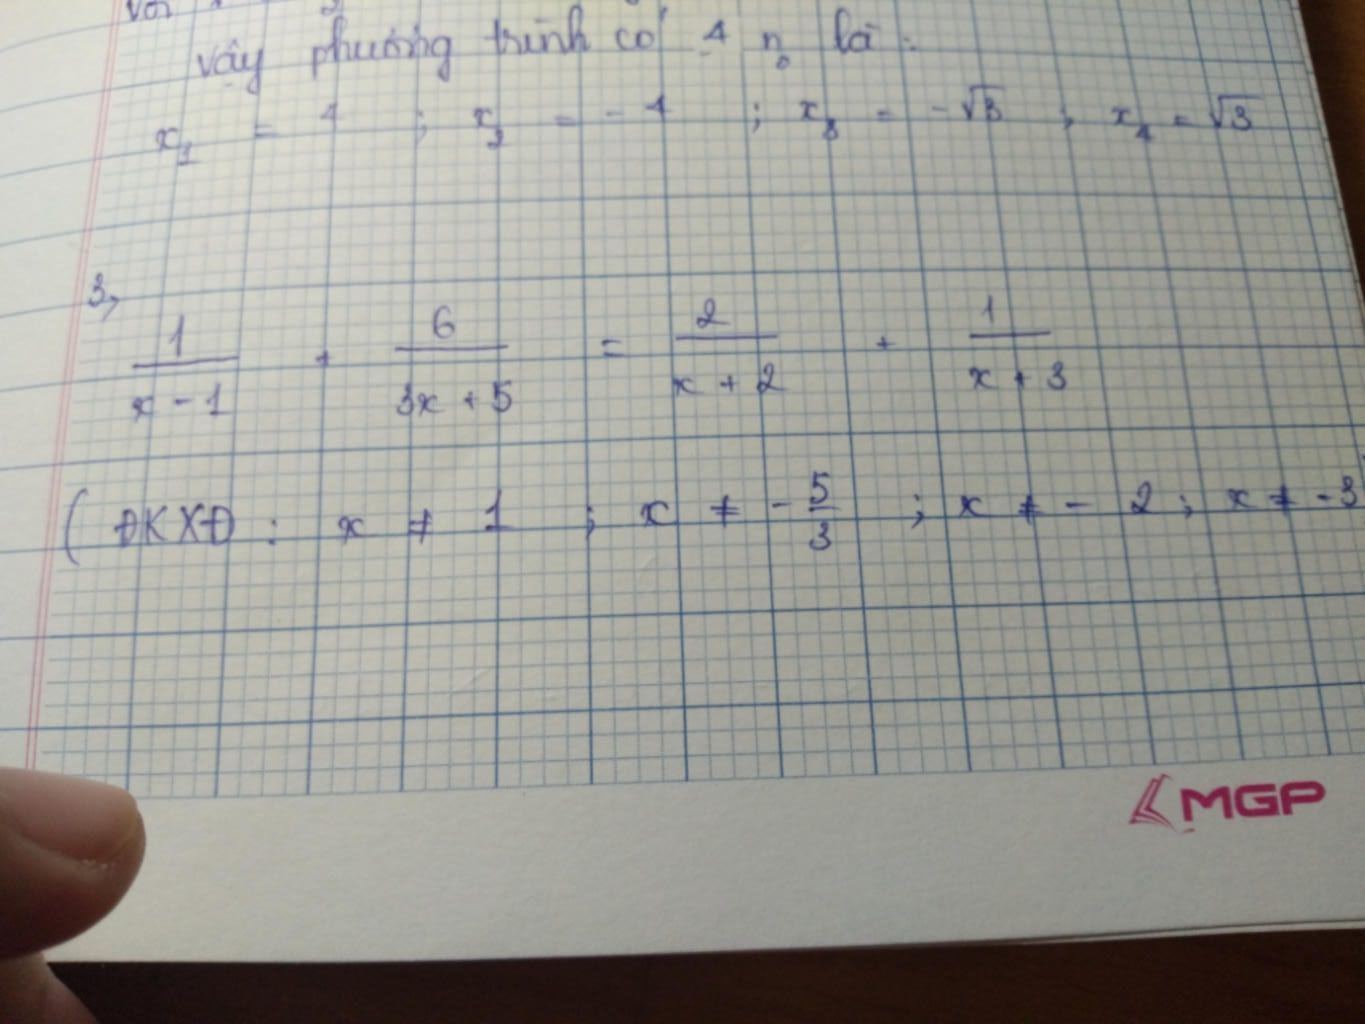 với
vậy phương trình có 4 n₀ là :
x₁ = 1 ; x₂ = - 1 ; x₃ = - √3 ; x₄ = √3
3,
1/(x - 1) + 6/(3x + 5) = 2/(x + 2) + 1/(x + 3)
( ĐKXĐ : x ≠ 1 ; x ≠ - 5/3 ; x ≠ - 2 ; x ≠ - 3
MGP